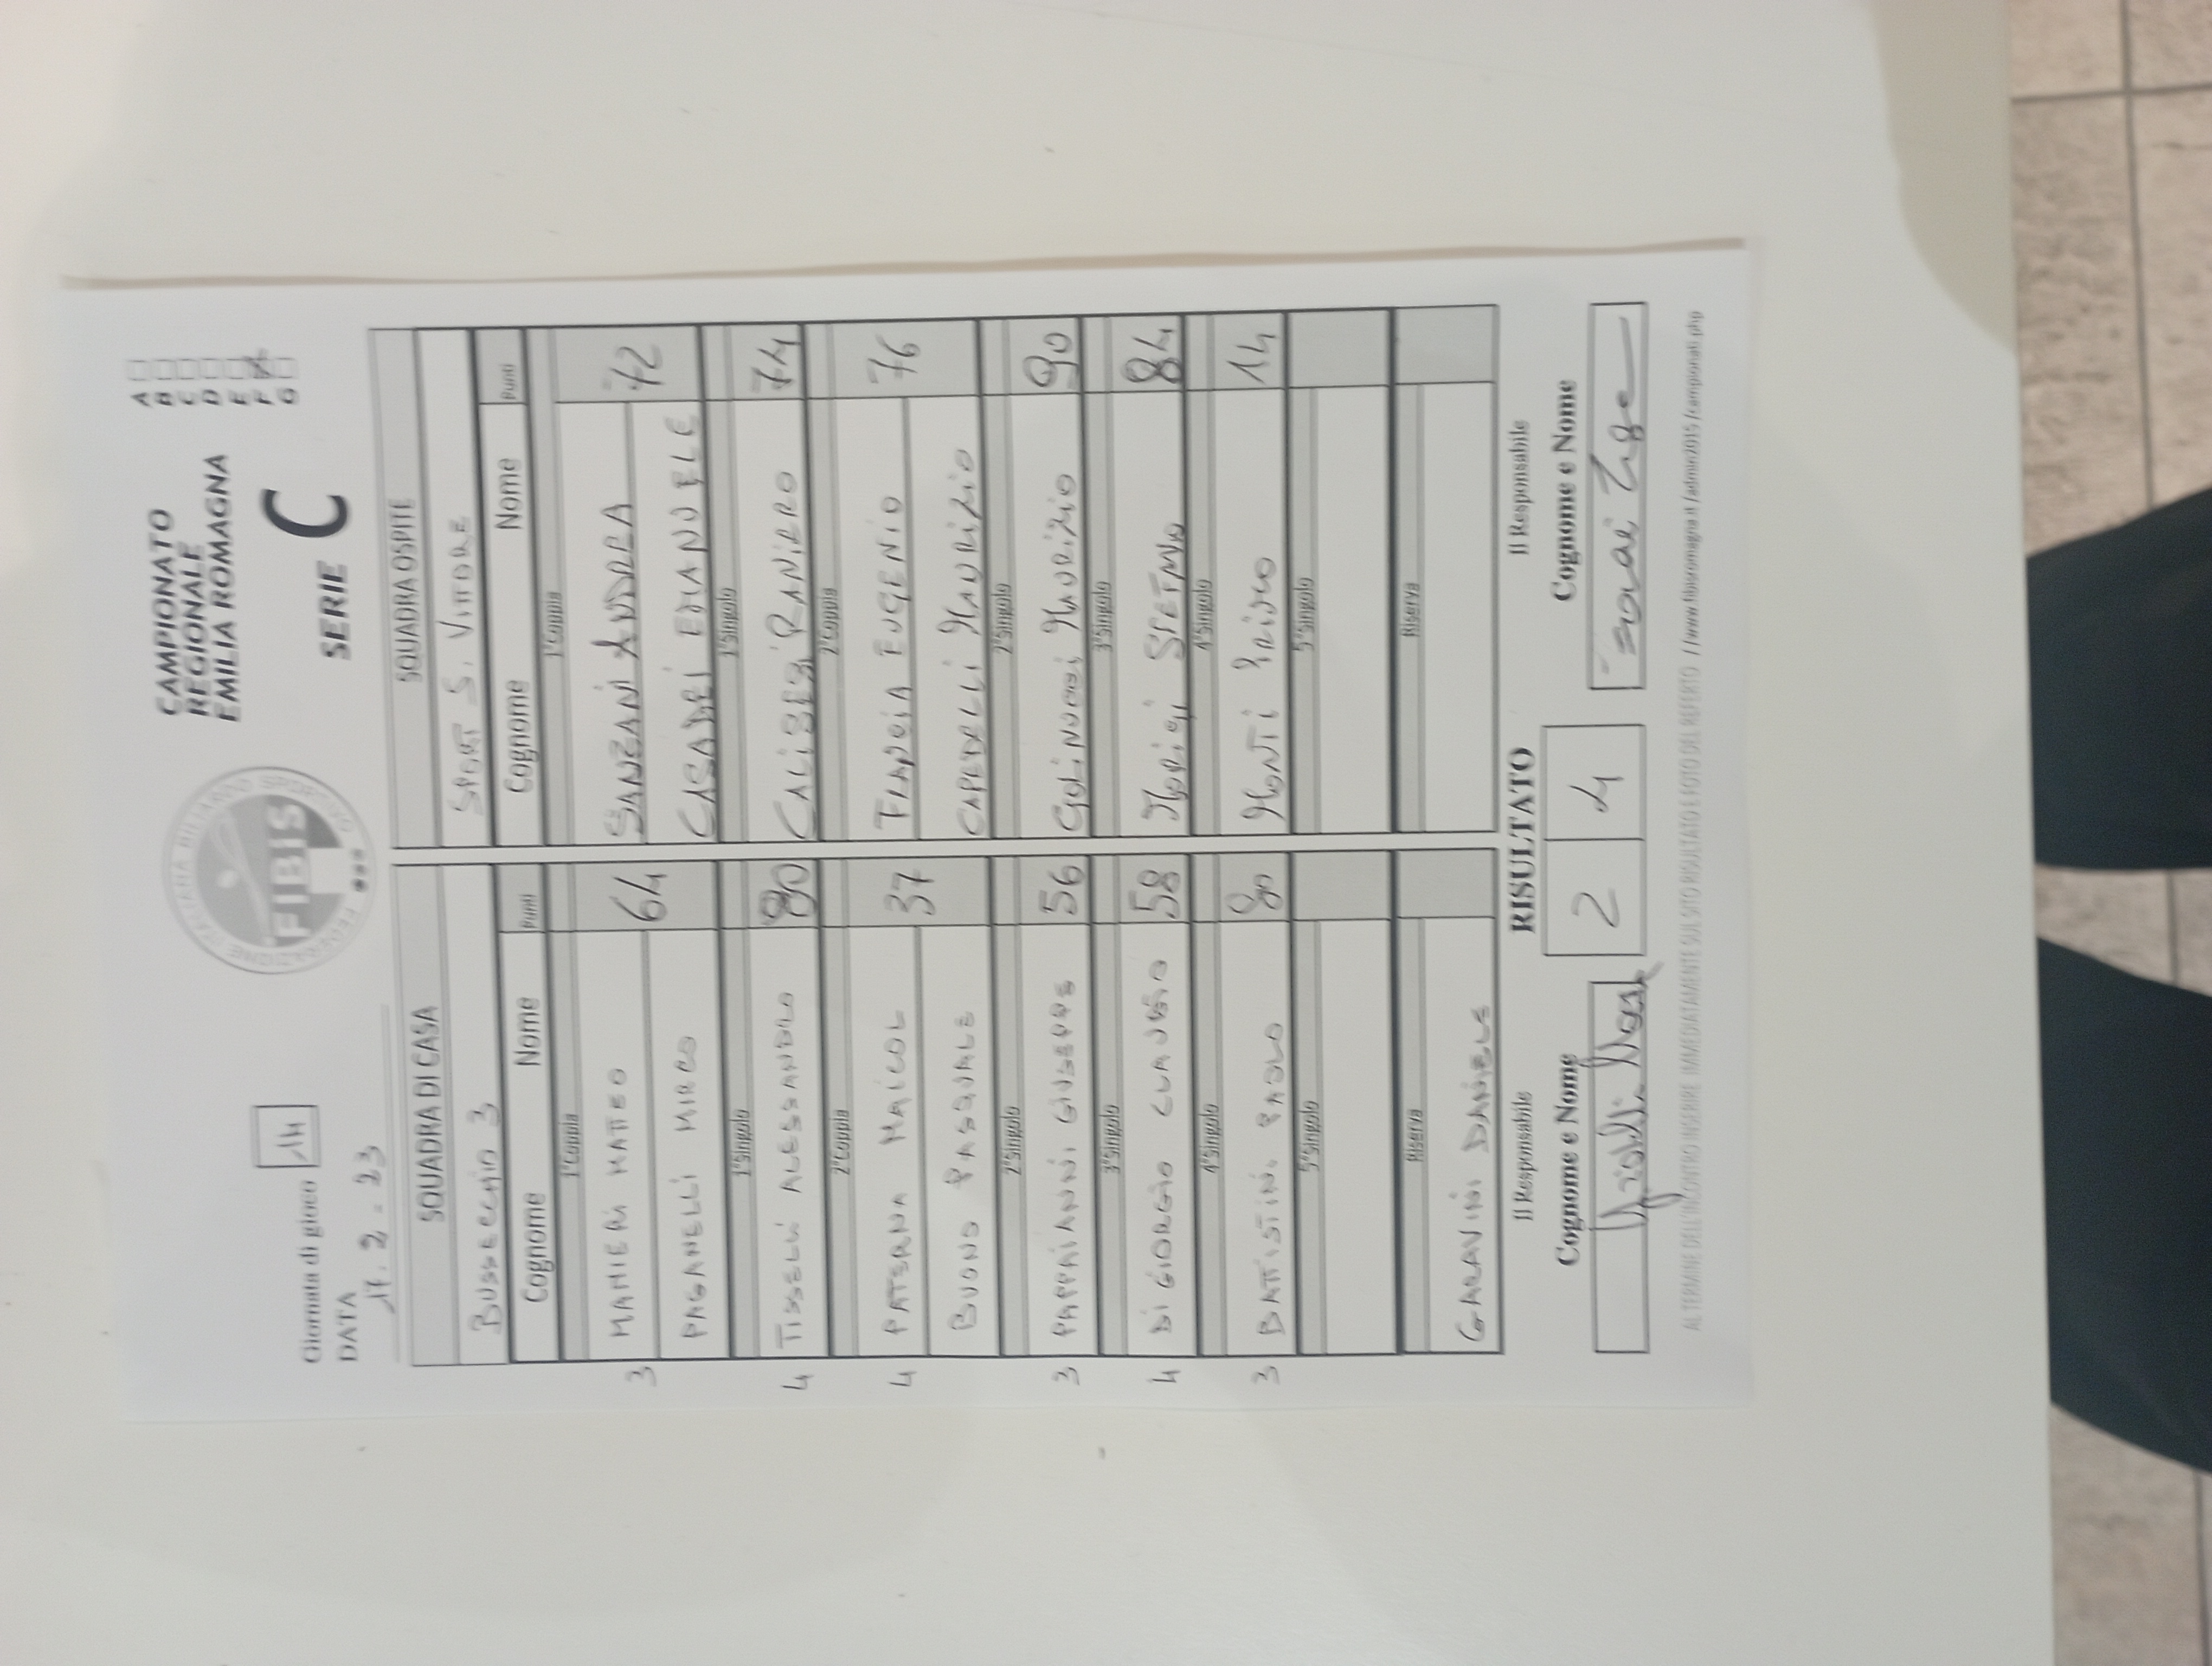 Giornata di gioco 14
DATA
17.2.23
FEDERAZIONE ITALIANA BILIARDO SPORTIVO
FIBIS
CAMPIONATO
REGIONALE
EMILIA ROMAGNA
SERIE C
A
B
C
D
E
F
G
SQUADRA DI CASA SQUADRA OSPITE
BUSSECCHIO 3 SPORT S. VITTORE
Cognome Nome Punti Cognome Nome Punti
1°Coppia 1°Coppia
3 MANIERI MATTEO 64 SANZANI ANDREA 72
PAGANELLI MIRCO CASADEI EMANUELE
1°Singolo 1°Singolo
4 TISSELLI ALESSANDRO 80 CALISESI RANIERO 74
2°Coppia 2°Coppia
4 PATERNA MAICOL 37 EUGENIO 76
BUONO PASQUALE CAPEDELLI MAURIZIO
2°Singolo 2°Singolo
3 PAPPAIANNI GIUSEPPE 56 MAURIZIO 90
3°Singolo 3°Singolo
4 DI GIORGIO CLAUDIO 58 MORIGI STEFANO 84
4°Singolo 4°Singolo
3 BATTISTINI PAOLO 80 MONTI 14
5°Singolo 5°Singolo
Riserva Riserva
GARAVINI DANIELE
Il Responsabile RISULTATO Il Responsabile
Cognome e Nome 2 4 Cognome e Nome
AL TERMINE DELL'INCONTRO INSERIRE IMMEDIATAMENTE SUL SITO RISULTATO E FOTO DEL REFERTO //www.fibisromagna.it/admin2015/campionati.php